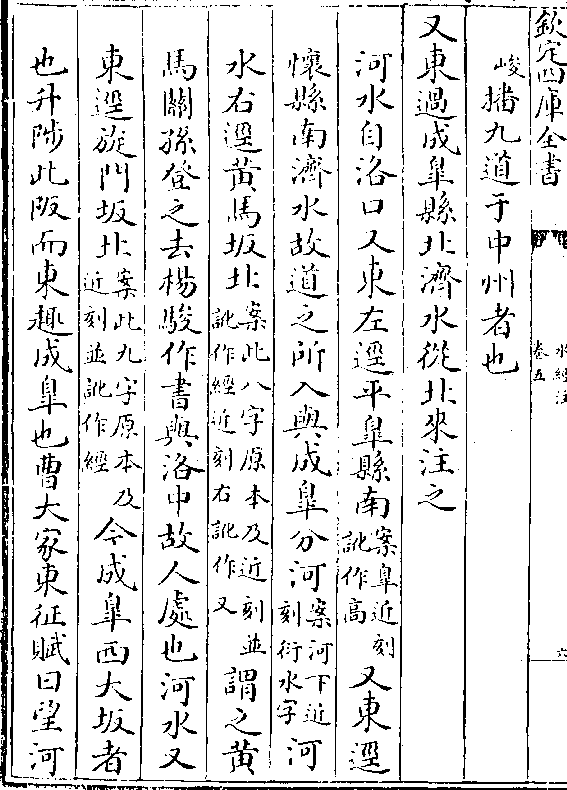 欽定四庫全書
水經注
卷五
六
峻播九道于中州者也
又東過成臯縣北濟水從北來注之
河水自洛口又東左逕平臯縣南案臯近刻訛作高又東逕
懷縣南濟水故道之所入與成臯分河案河下近刻衍水字河
水右逕黄馬坂北案此八字原本及近刻並訛作經近刻右訛作又謂之黄
馬關孫登之去楊駿作書與洛中故人處也河水又
東逕旋門坂北案此九字原本及近刻並訛作經今成臯西大坂者
也升陟此阪而東趣成臯也曹大家東征賦曰望河